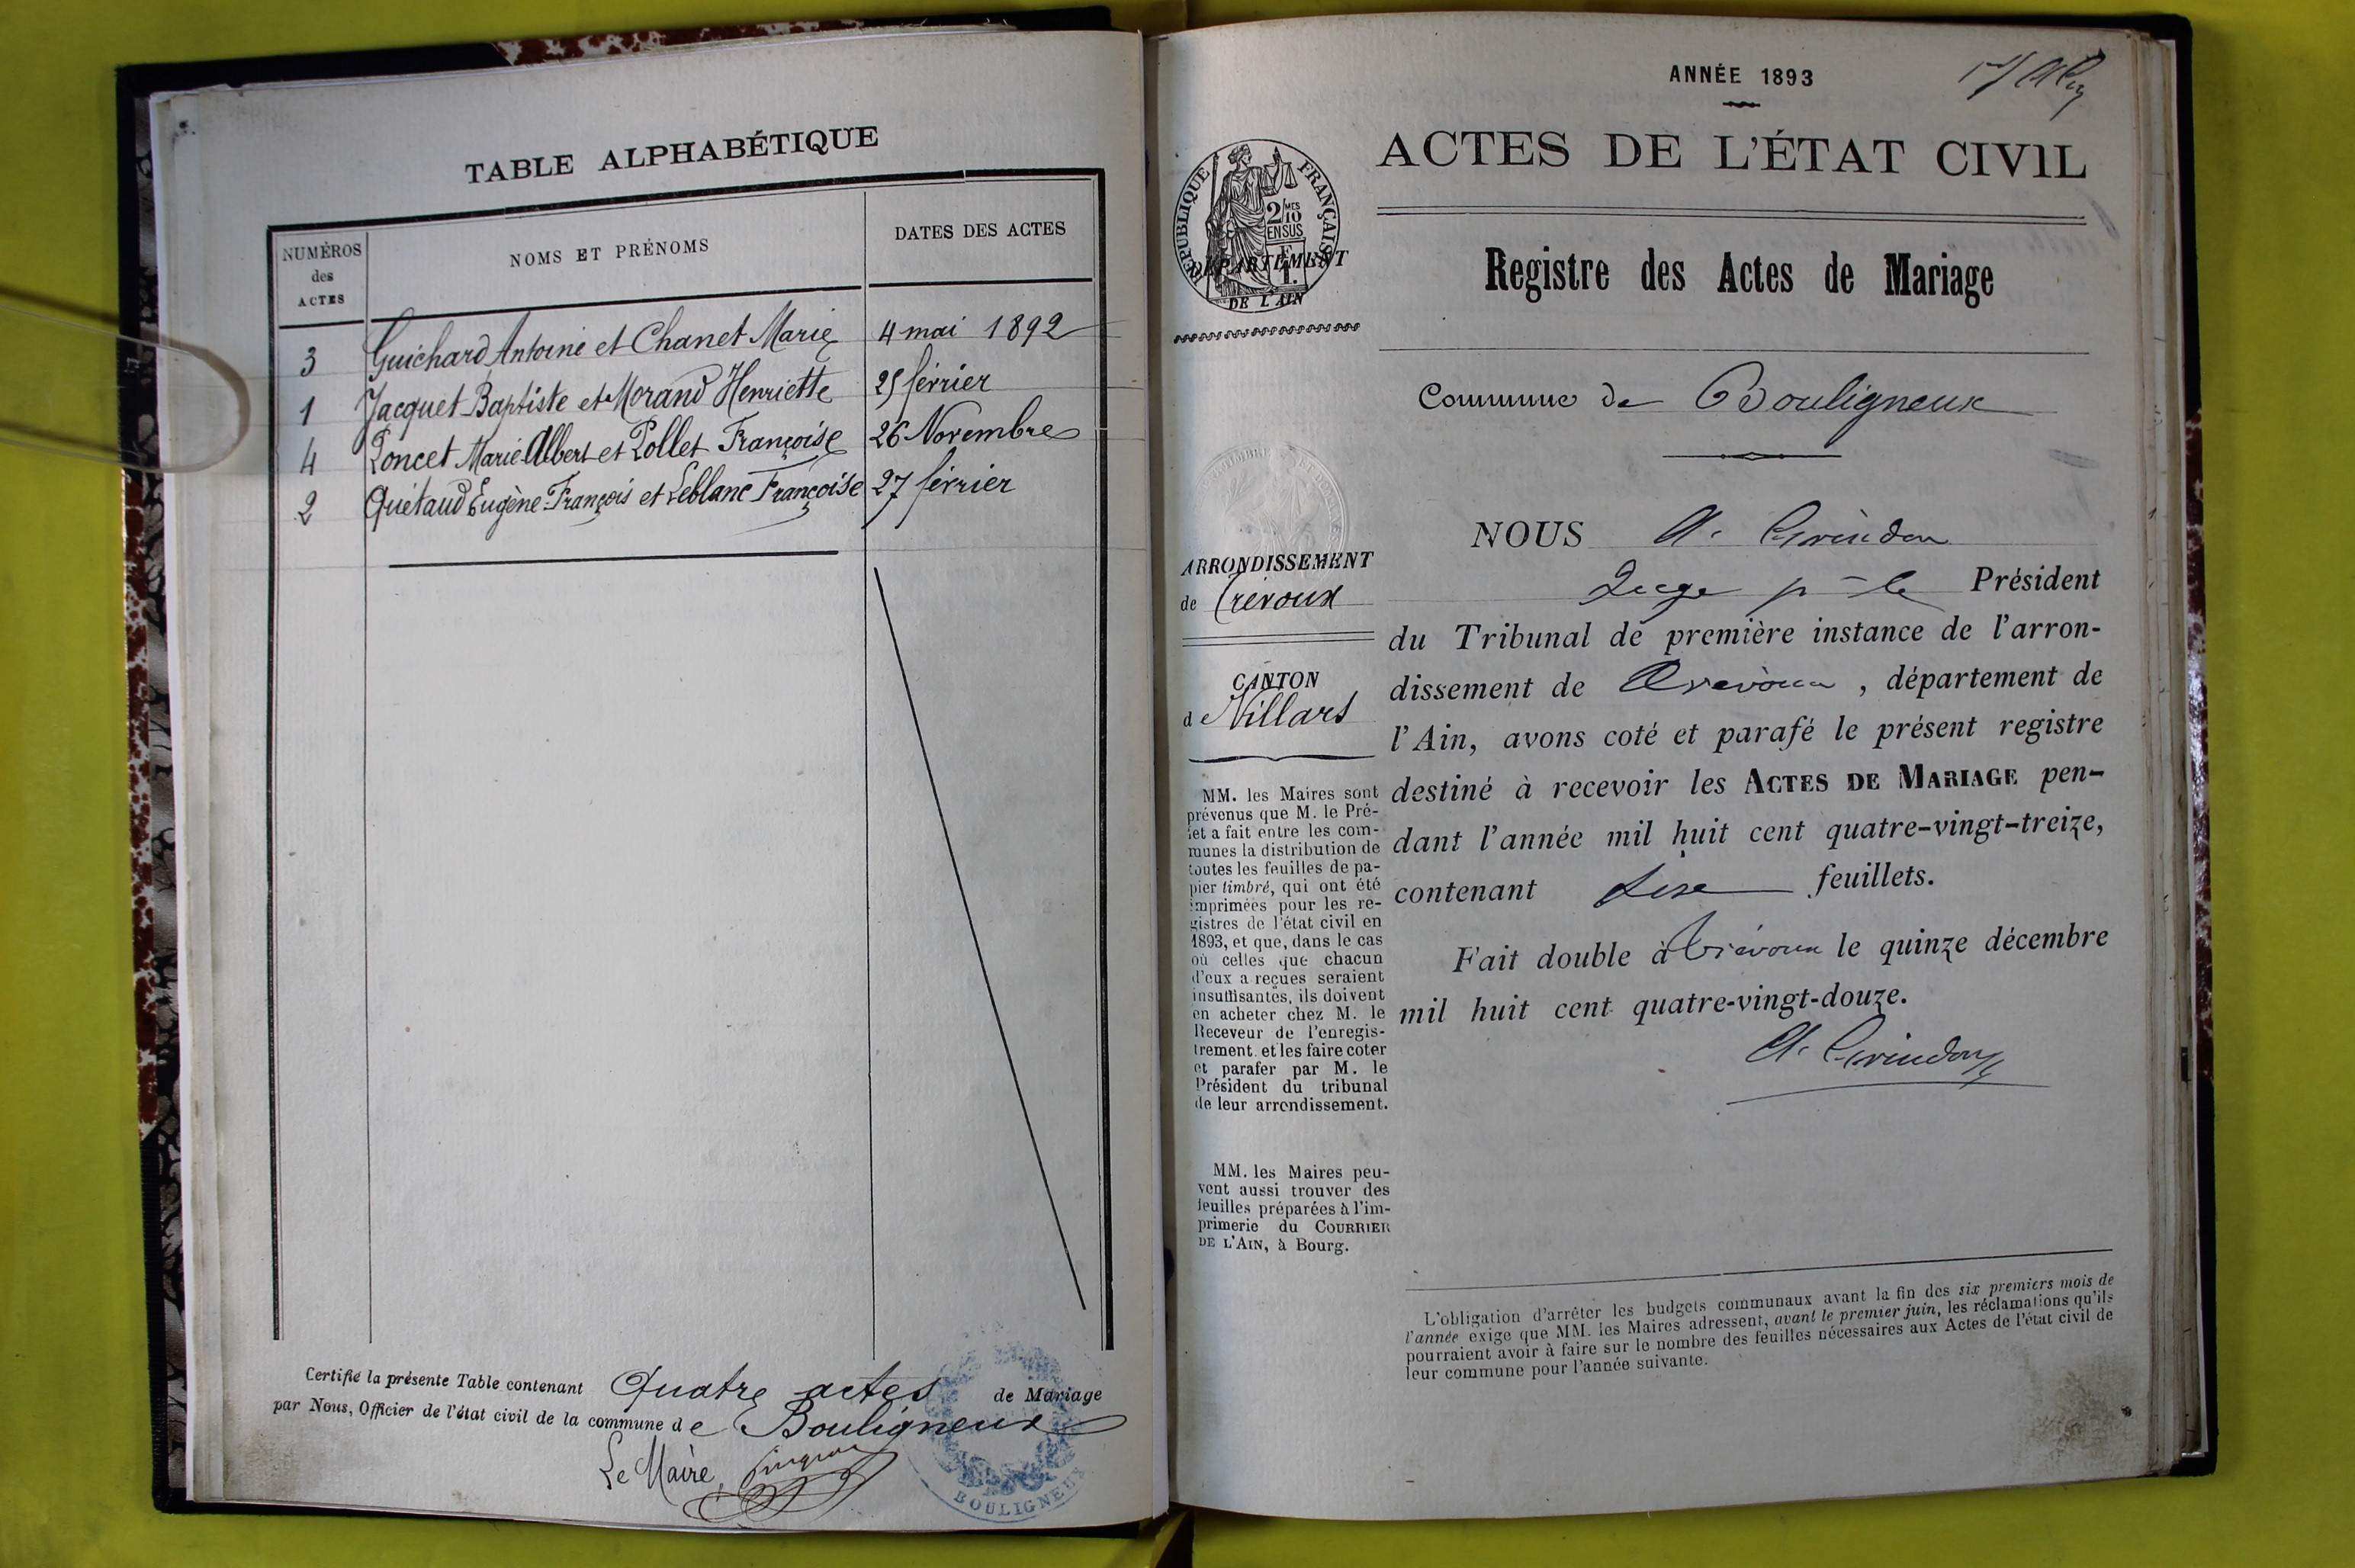 TABLE ALPHABÉTIQUE
NUMÉROS
des
ACTES
NOMS ET PRÉNOMS
DATES DES ACTES
3 Guichard Antoine et Chanet Marie 4 mai 1892
1 Jacquet Baptiste et Morand Henriette 25 février
4 Poncet Marie Albert et Pollet Françoise 26 Novembre
2 Quétaud Eugène François et Leblanc Françoise 27 février
Certifié la présente Table contenant Quatre actes de Mariage
par Nous, Officier de l'état civil de la commune de Bouligneux
Le Maire,
BOULIGNEUX
ANNÉE 1893
ACTES DE L'ÉTAT CIVIL
RÉPUBLIQUE FRANÇAISE
2/10 MES
EN SUS
DÉPARTEMENT
DE L'AIN
Registre des Actes de Mariage
Commune de Bouligneux
ARRONDISSEMENT
de Trévoux
CANTON
de Villars
MM. les Maires sont
prévenus que M. le Pré-
fet a fait entre les com-
munes la distribution de
toutes les feuilles de pa-
pier timbré, qui ont été
imprimées pour les re-
gistres de l'état civil en
1893, et que, dans le cas
où celles que chacun
d'eux a reçues seraient
insuffisantes, ils doivent
en acheter chez M. le
Receveur de l'enregis-
trement et les faire coter
et parafer par M. le
Président du tribunal
de leur arrondissement.
MM. les Maires peu-
vent aussi trouver des
feuilles préparées à l'im-
primerie du COURRIER
DE L'AIN, à Bourg.
NOUS A. Grindon
Juge pr le Président
du Tribunal de première instance de l'arron-
dissement de Trévoux, département de
l'Ain, avons coté et parafé le présent registre
destiné à recevoir les ACTES DE MARIAGE pen-
dant l'année mil huit cent quatre-vingt-treize,
contenant feuillets.
Fait double à Trévoux le quinze décembre
mil huit cent quatre-vingt-douze.
A. Grindon
L'obligation d'arrêter les budgets communaux avant la fin des six premiers mois de
l'année exige que MM. les Maires adressent, avant le premier juin, les réclamations qu'ils
pourraient avoir à faire sur le nombre des feuilles nécessaires aux Actes de l'état civil de
leur commune pour l'année suivante.